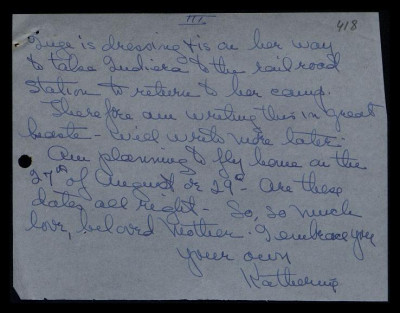 III.
418
Inge is dressing & is on her way
to take Indiera to the railroad
station to return to her camp.
Therefore am writing this in great
haste – will write more later.
Am planning to fly home on the
27th of August or 29th – Are these
dates all right – So, so much
love, beloved Mother. I embrace you
your own
Katherine